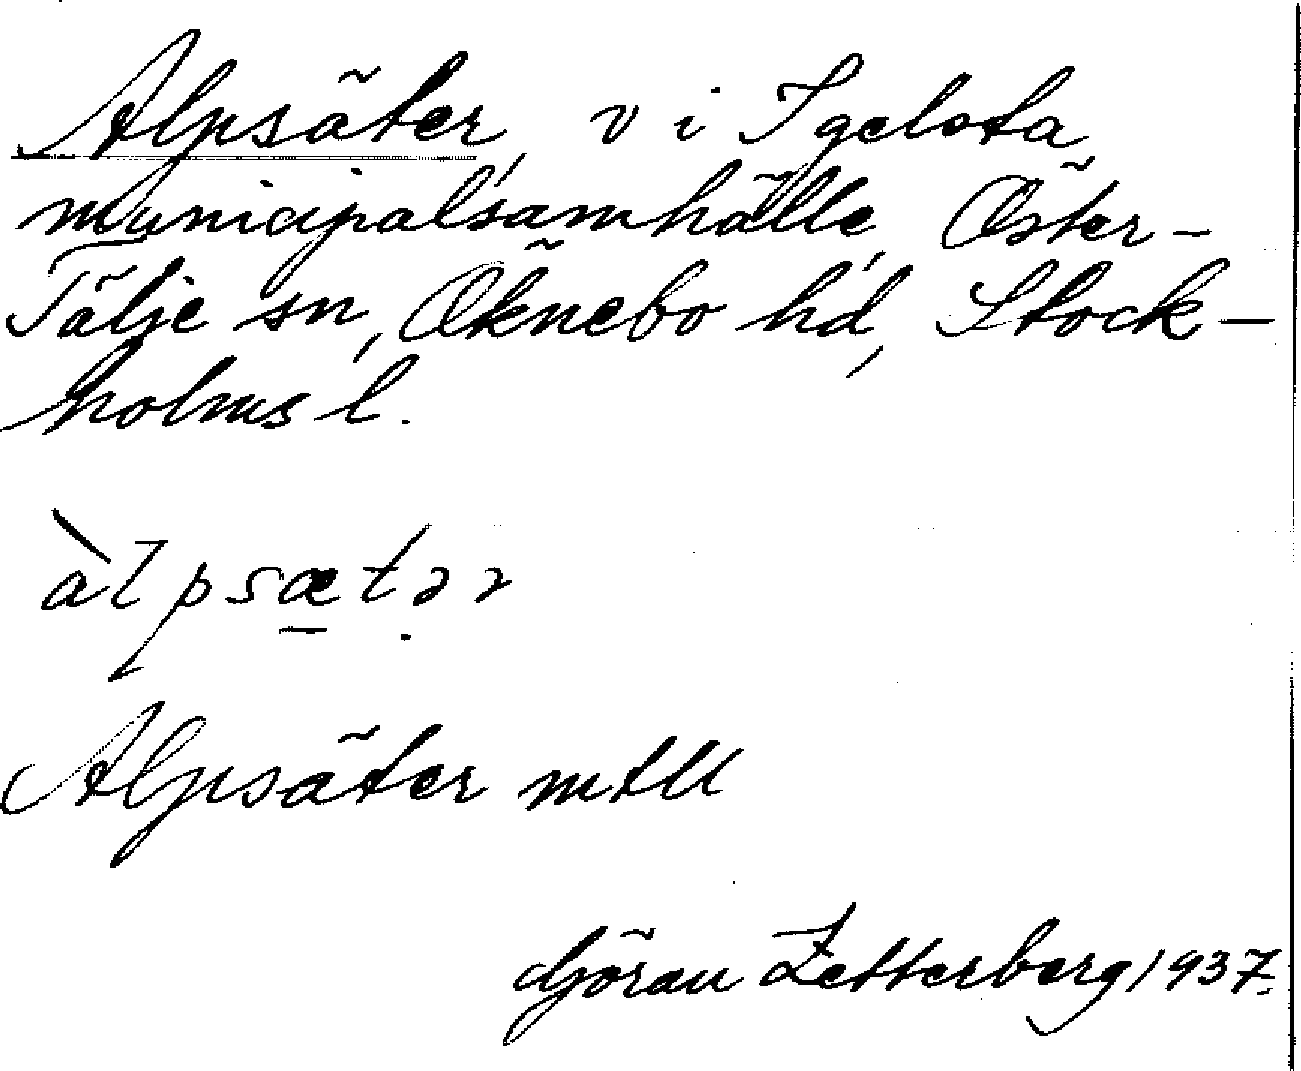 Alpsäter, v i Igelsta
municipalsamhälle, Öster-
Tälje sn, Öknebo hd, Stock-
holms l.
àlpsæ̲tə̣r
Alpsäter mtll
Göran Zetterberg 1937.